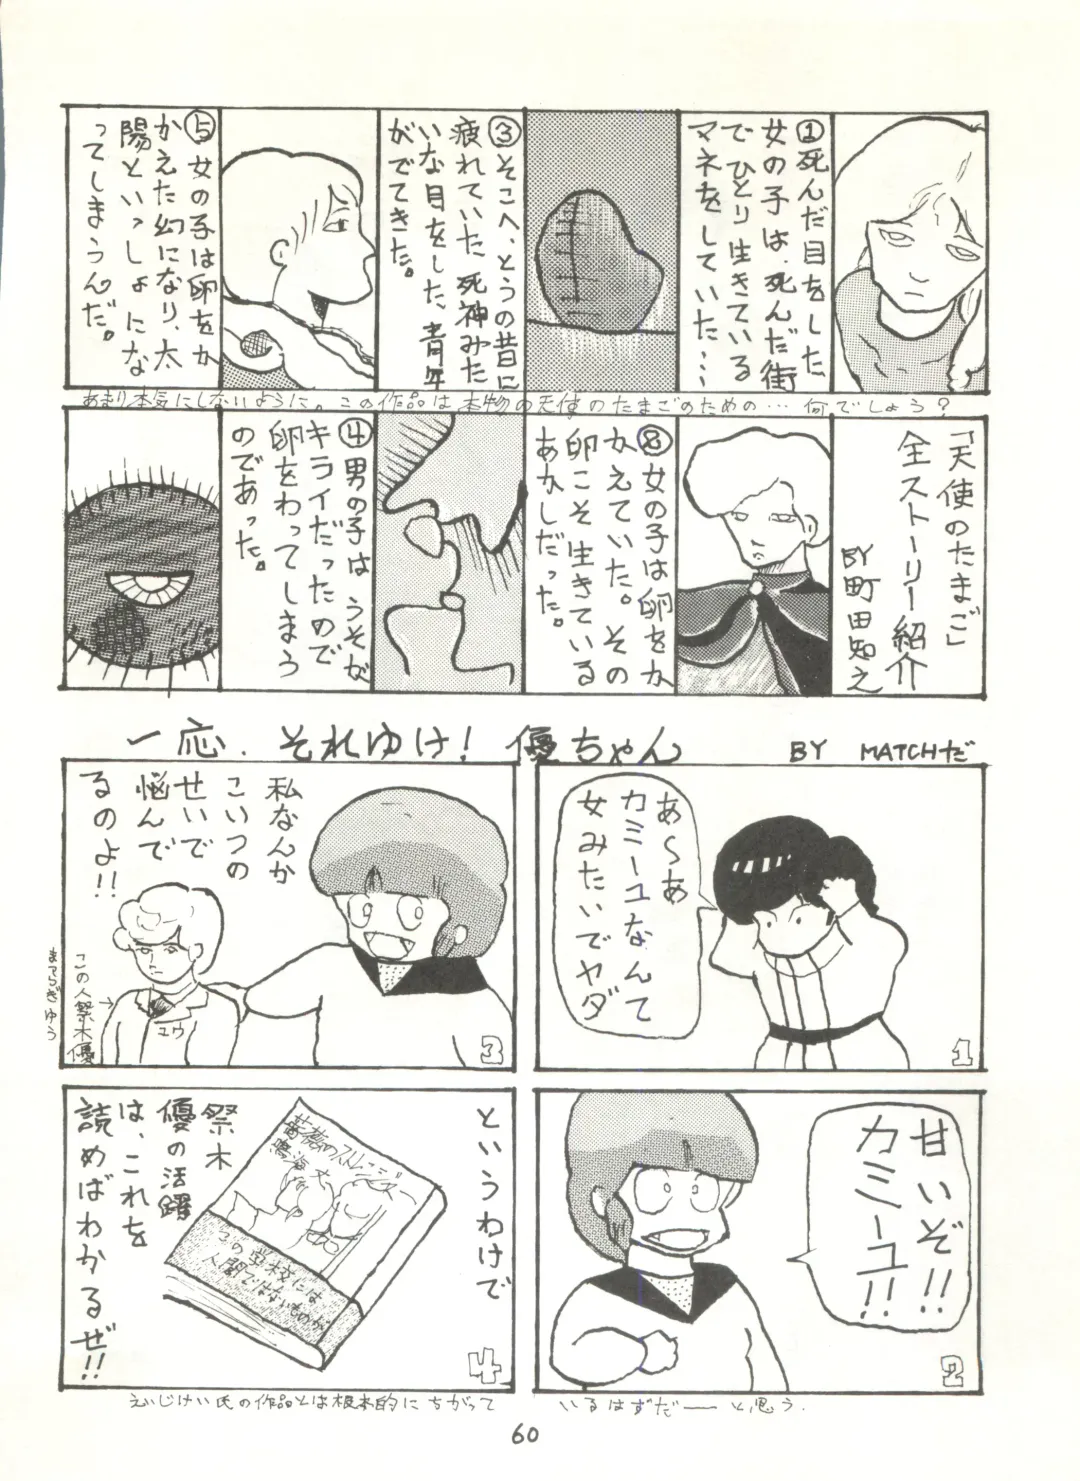 ①死んだ目をした
女の子は、死んだ街
でひとり生きている
マネをしていた…
③そこへ、とうの昔に
疲れていた死神みた
いな目をした青年
がでてきた。
⑤女の子は卵をか
かえた幻になり、太
陽といっしょにな
ってしまうんだ。
あまり本気にしないように。この作品は本物の天使のたまごのための…何でしょう？
「天使のたまご」
全ストーリー紹介
BY町田知之
⑧女の子は卵をか
かえていた。その
卵こそ生きている
あかしだった。
④男の子はうそが
キライだったので
卵をわってしまう
のであった。
一応.それゆけ！優ちゃん
BY MATCHだ
あ〜あ
カミーユなんて
女みたいでヤダ
1
甘いぞ!!
カミーユ!!
2
私なんか
こいつの
せいで
悩んで
るのよ!!
ユウ
この人祭木優
まつらぎゆう
3
というわけで
薔薇のストレンジャー
鳴海丈
この学校には
人間ではないものが
祭木
優の活躍
は、これを
読めばわかるぜ!!
4
えいじけい氏の作品とは根本的にちがって
いるはずだ――と思う.
60